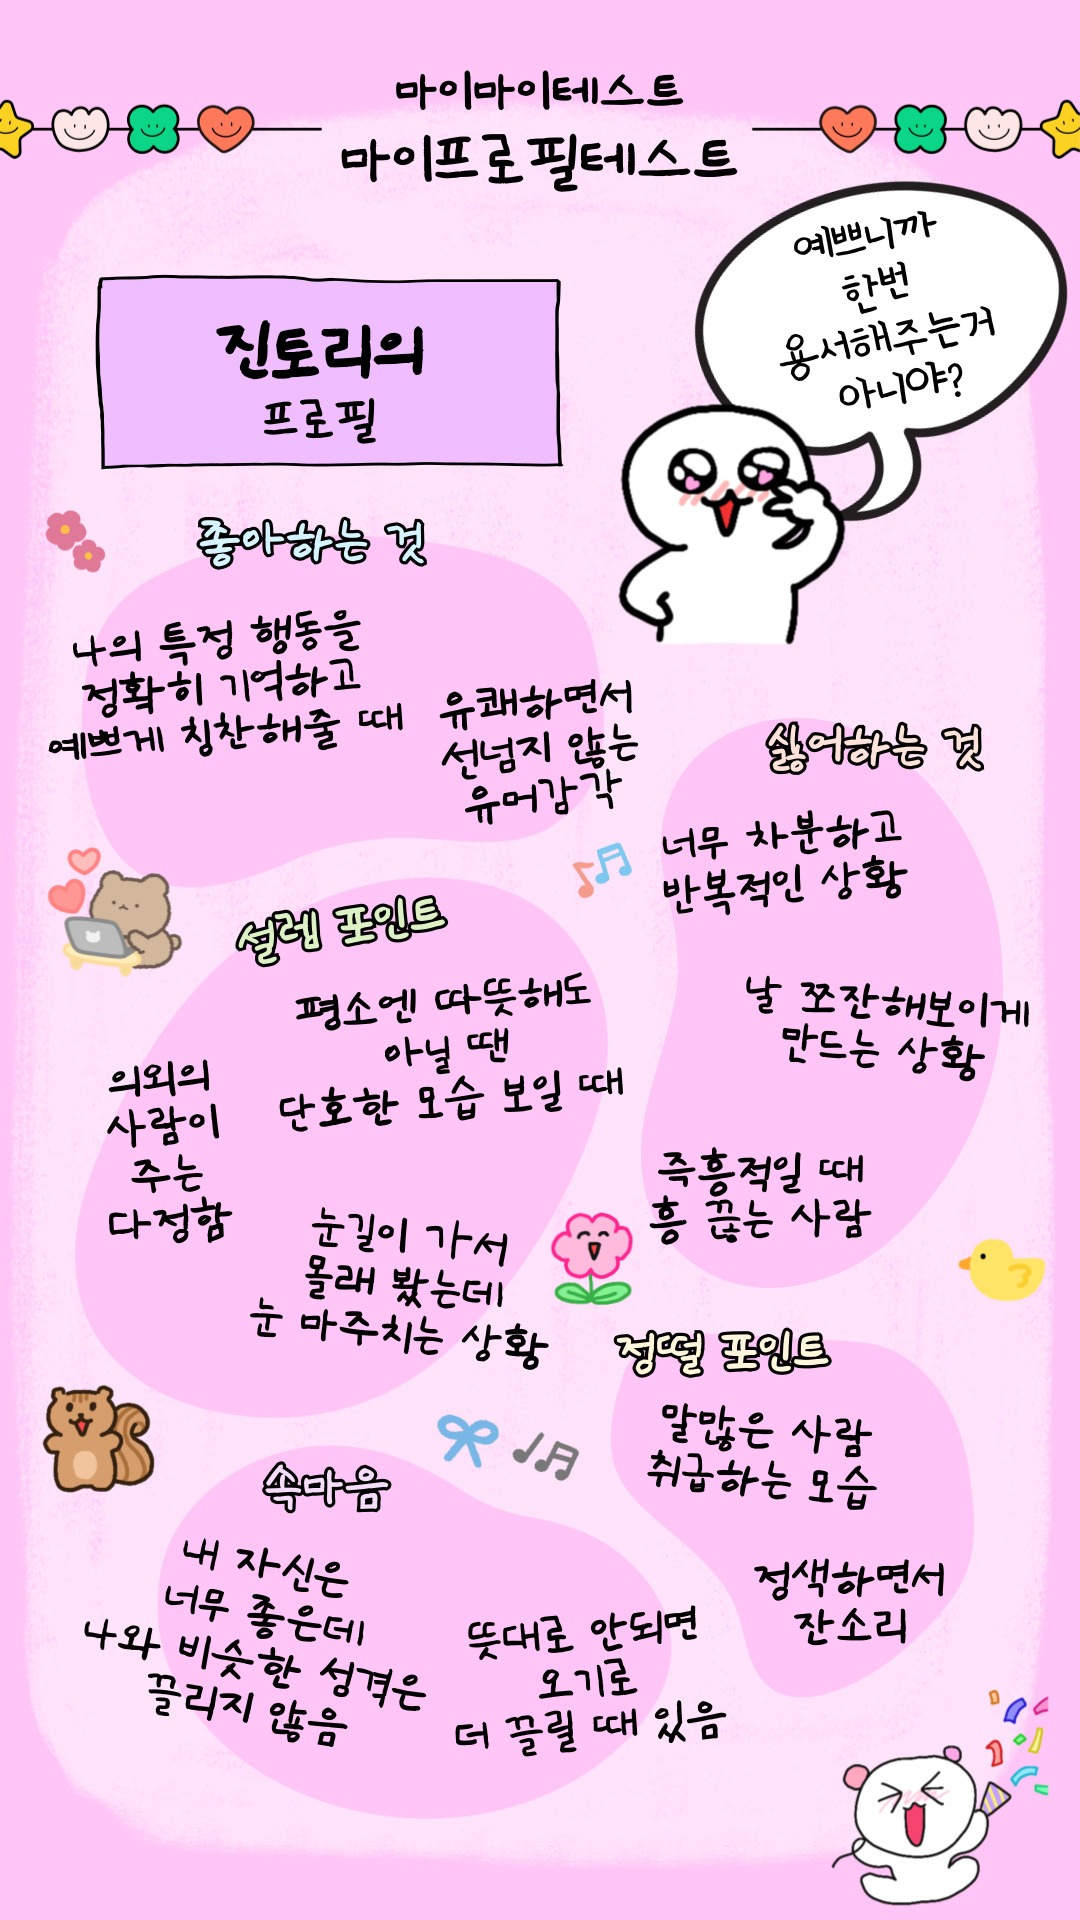 마이마이테스트
마이프로필테스트
예쁘니까
한번
용서해주는거
아니야?
진토리의
프로필
좋아하는 것
나의 특정 행동을
정확히 기억하고
예쁘게 칭찬해줄 때
유쾌하면서
선넘지 않는
유머감각
싫어하는 것
너무 차분하고
반복적인 상황
날 쪼잔해보이게
만드는 상황
즉흥적일 때
흥 끊는 사람
설렘 포인트
평소엔 따뜻해도
아닐 땐
단호한 모습 보일 때
의외의
사람이
주는
다정함
눈길이 가서
몰래 봤는데
눈 마주치는 상황
정떨 포인트
말많은 사람
취급하는 모습
정색하면서
잔소리
속마음
내 자신은
너무 좋은데
나와 비슷한 성격은
끌리지 않음
뜻대로 안되면
오기로
더 끌릴 때 있음